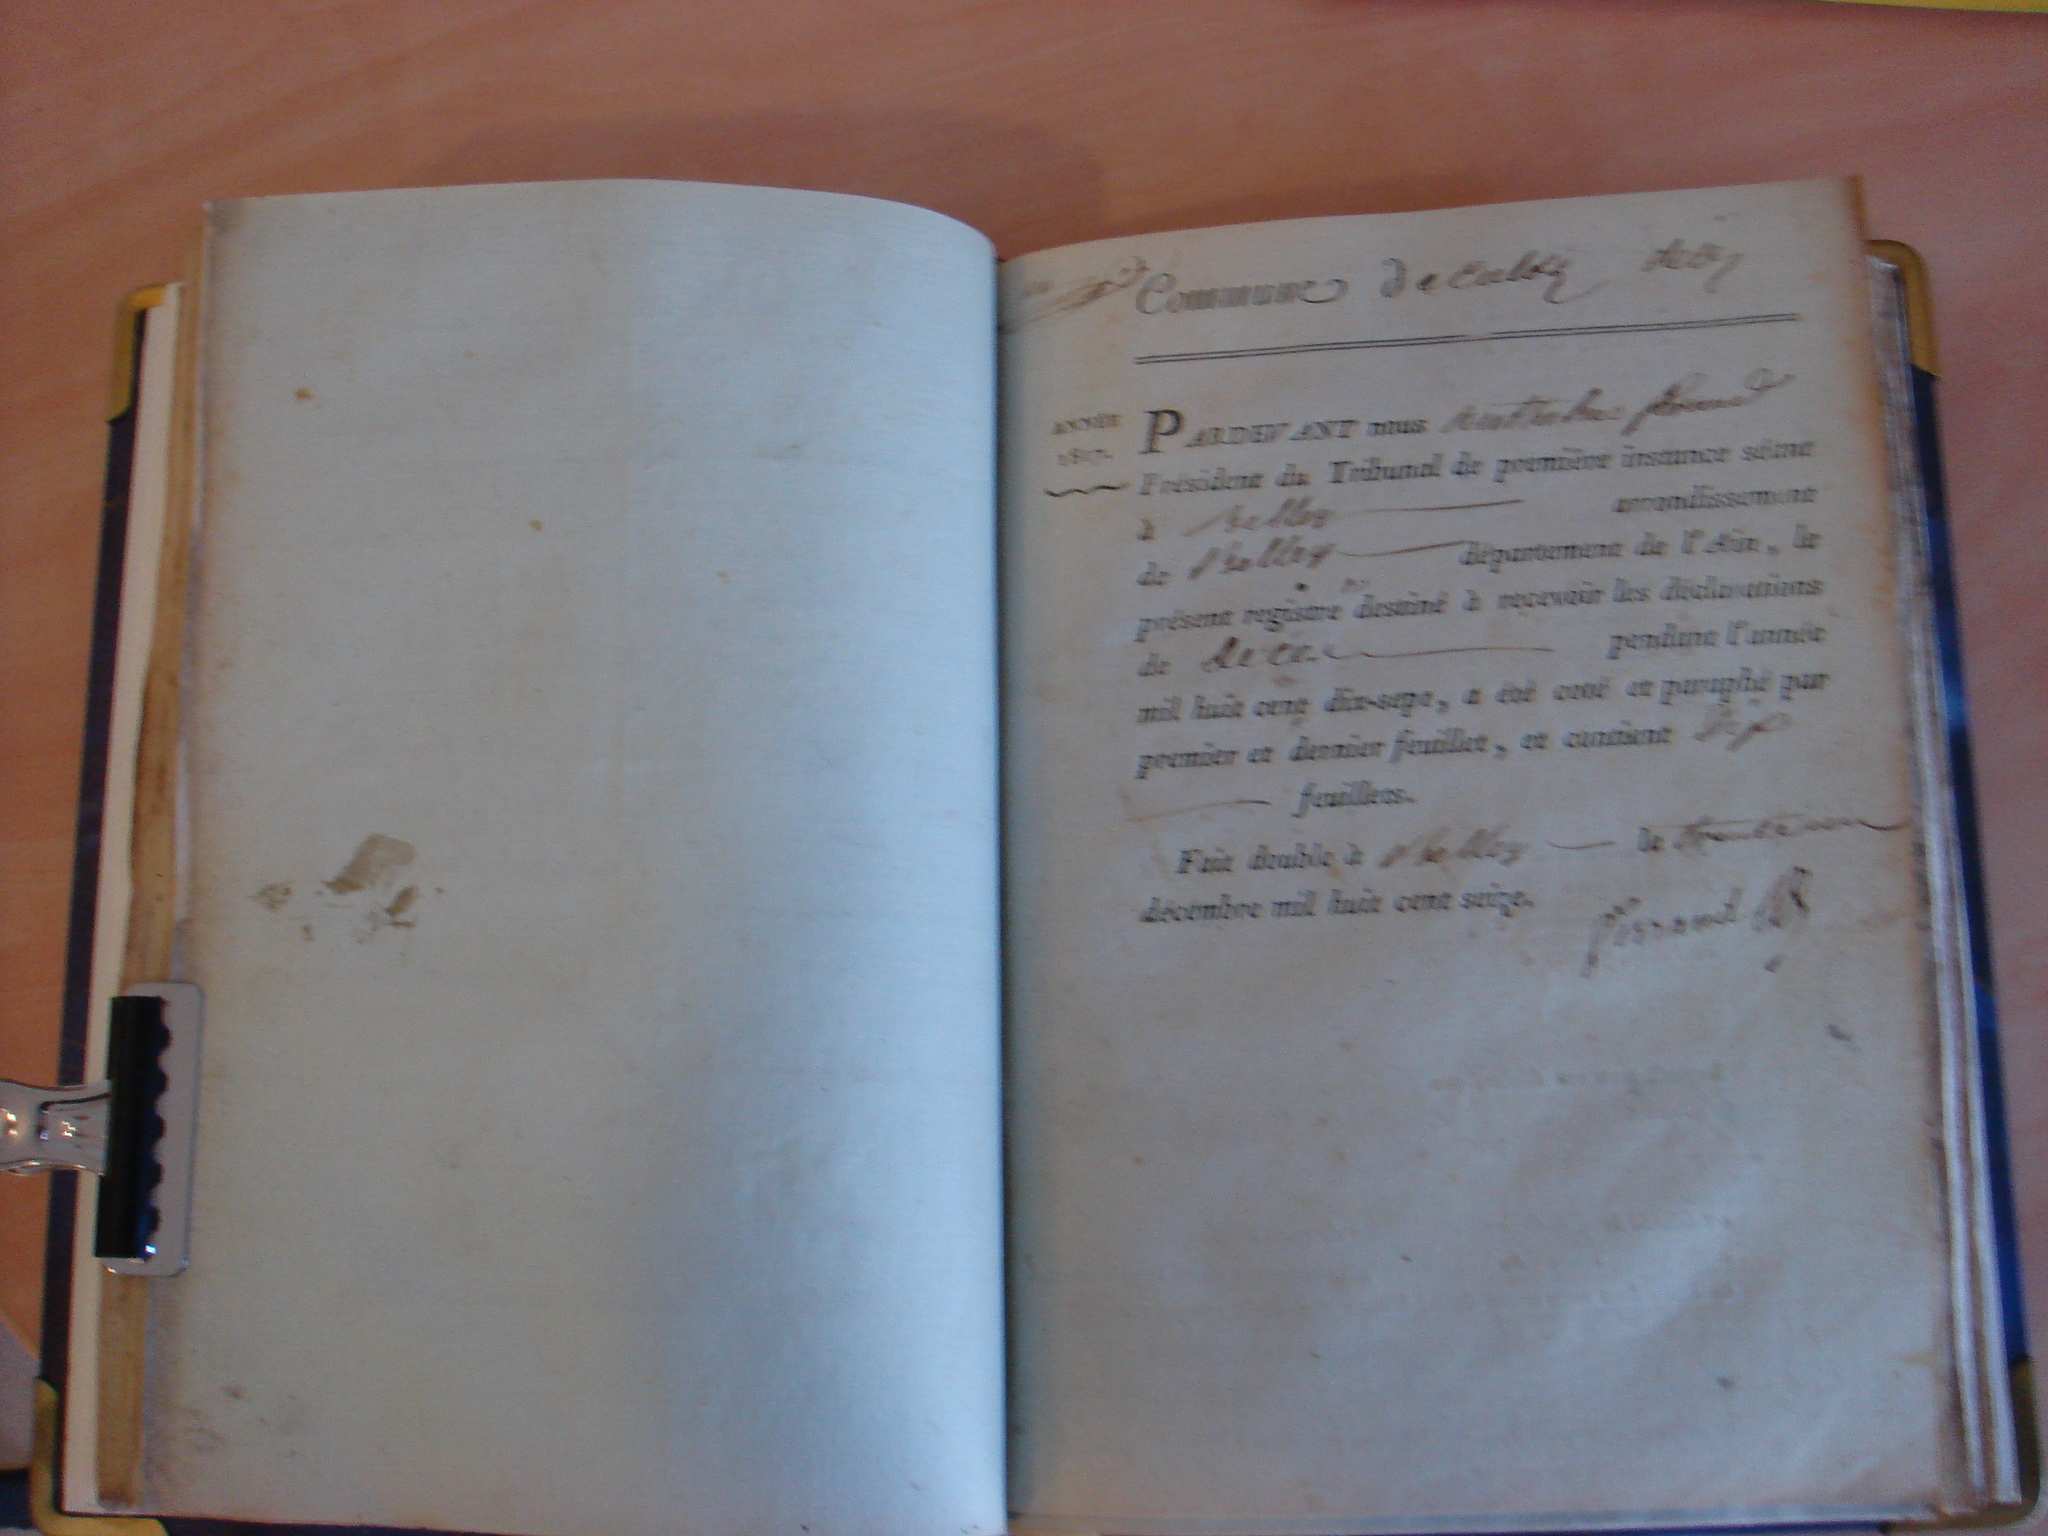 Commune De
ANNÉE
1817.
PARDEVANT nous
Président du Tribunal de première instance séant
à Belley arrondissement
de Belley département de l'Ain, le
présent registre destiné à recevoir les déclarations
de décès pendant l'année
mil huit cent dix-sept, a été coté et paraphé par
premier et dernier feuillet, et contient
feuillets.
Fait double à Belley le trente un
décembre mil huit cent seize.